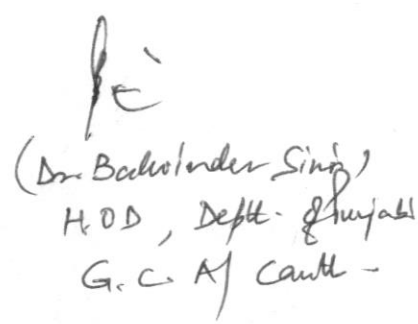 (Dr. Balwinder Singh)
H.O.D, Deptt. of Punjabi
G.C. A/ Cantt -